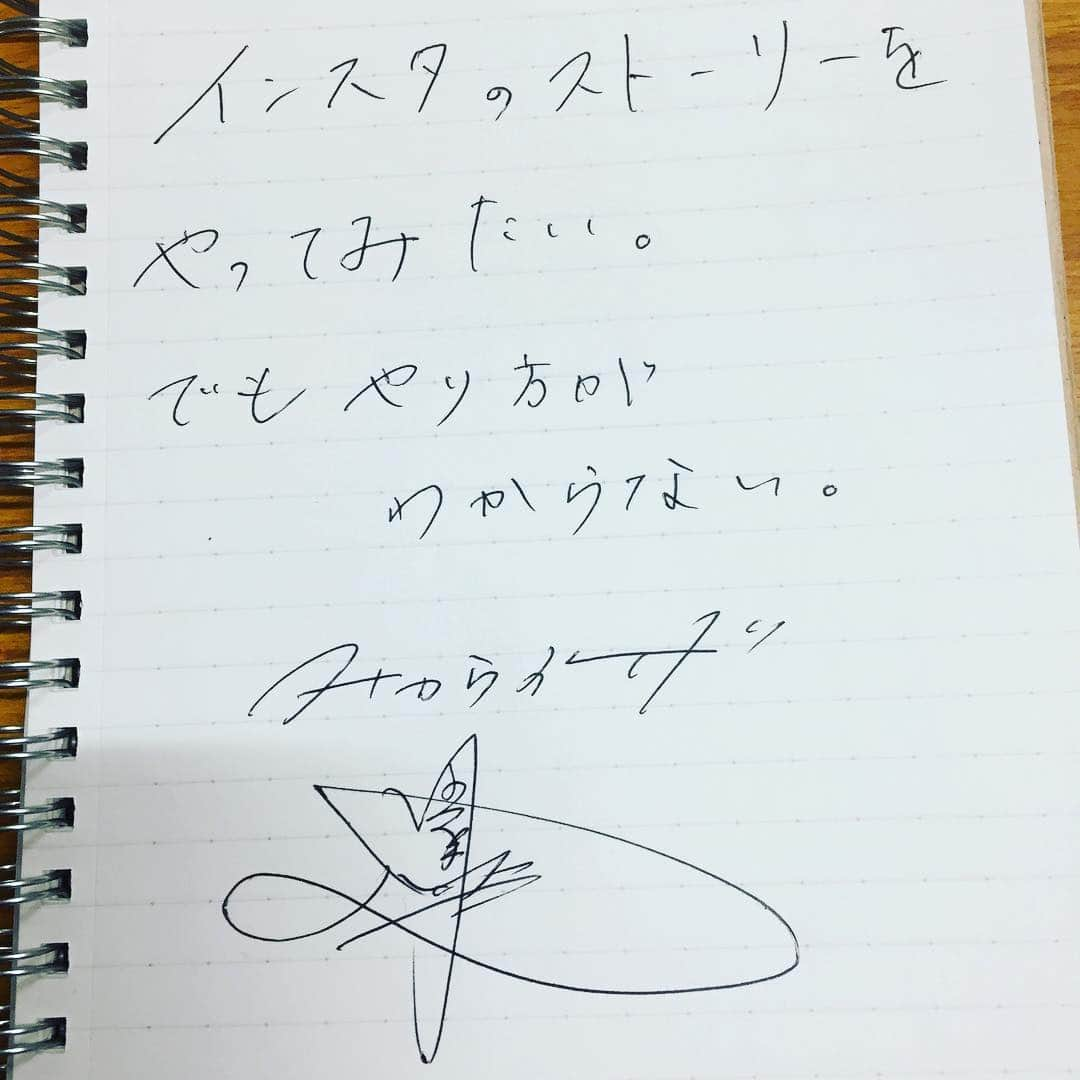 インスタのストーリーを
やってみたい。
でもやり方が
わからない。